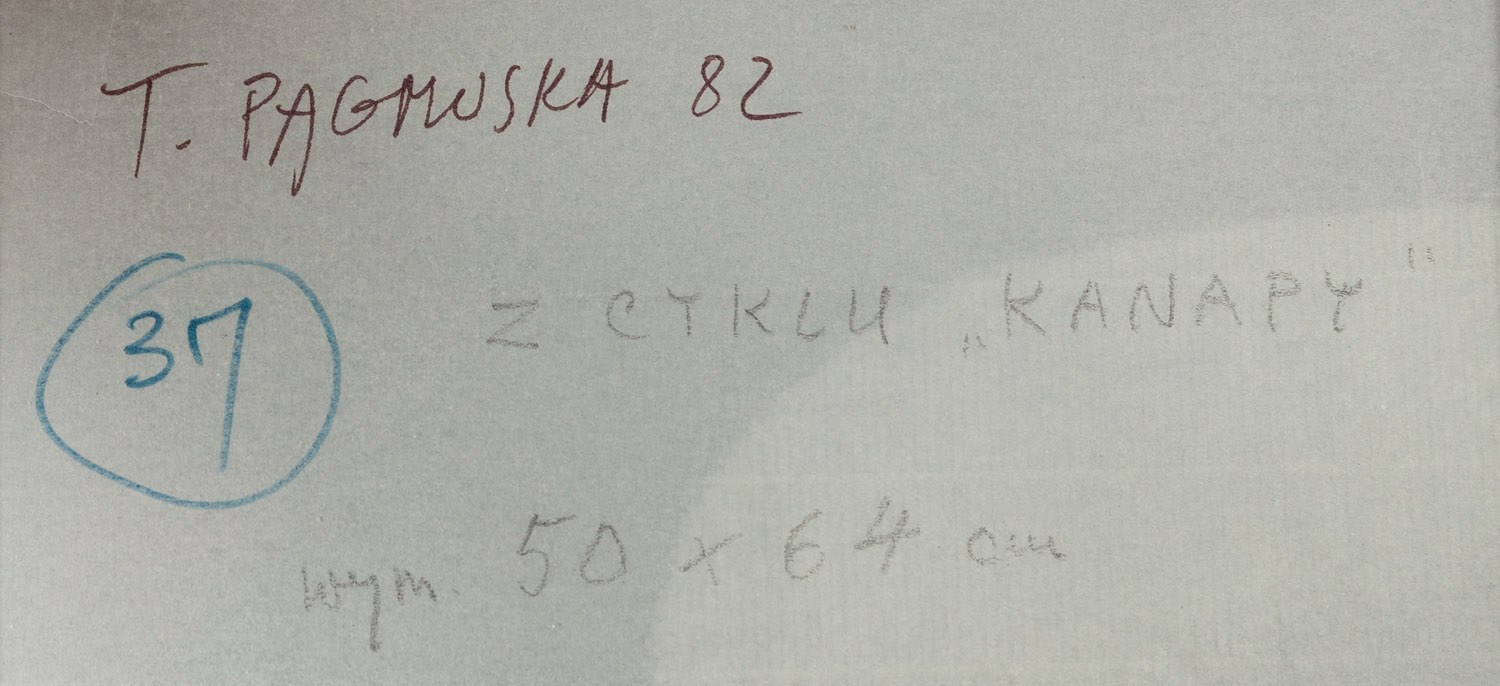 T. PĄGOWSKA 82
37
Z CYKLU „KANAPY"
wym. 50 x 64 cm